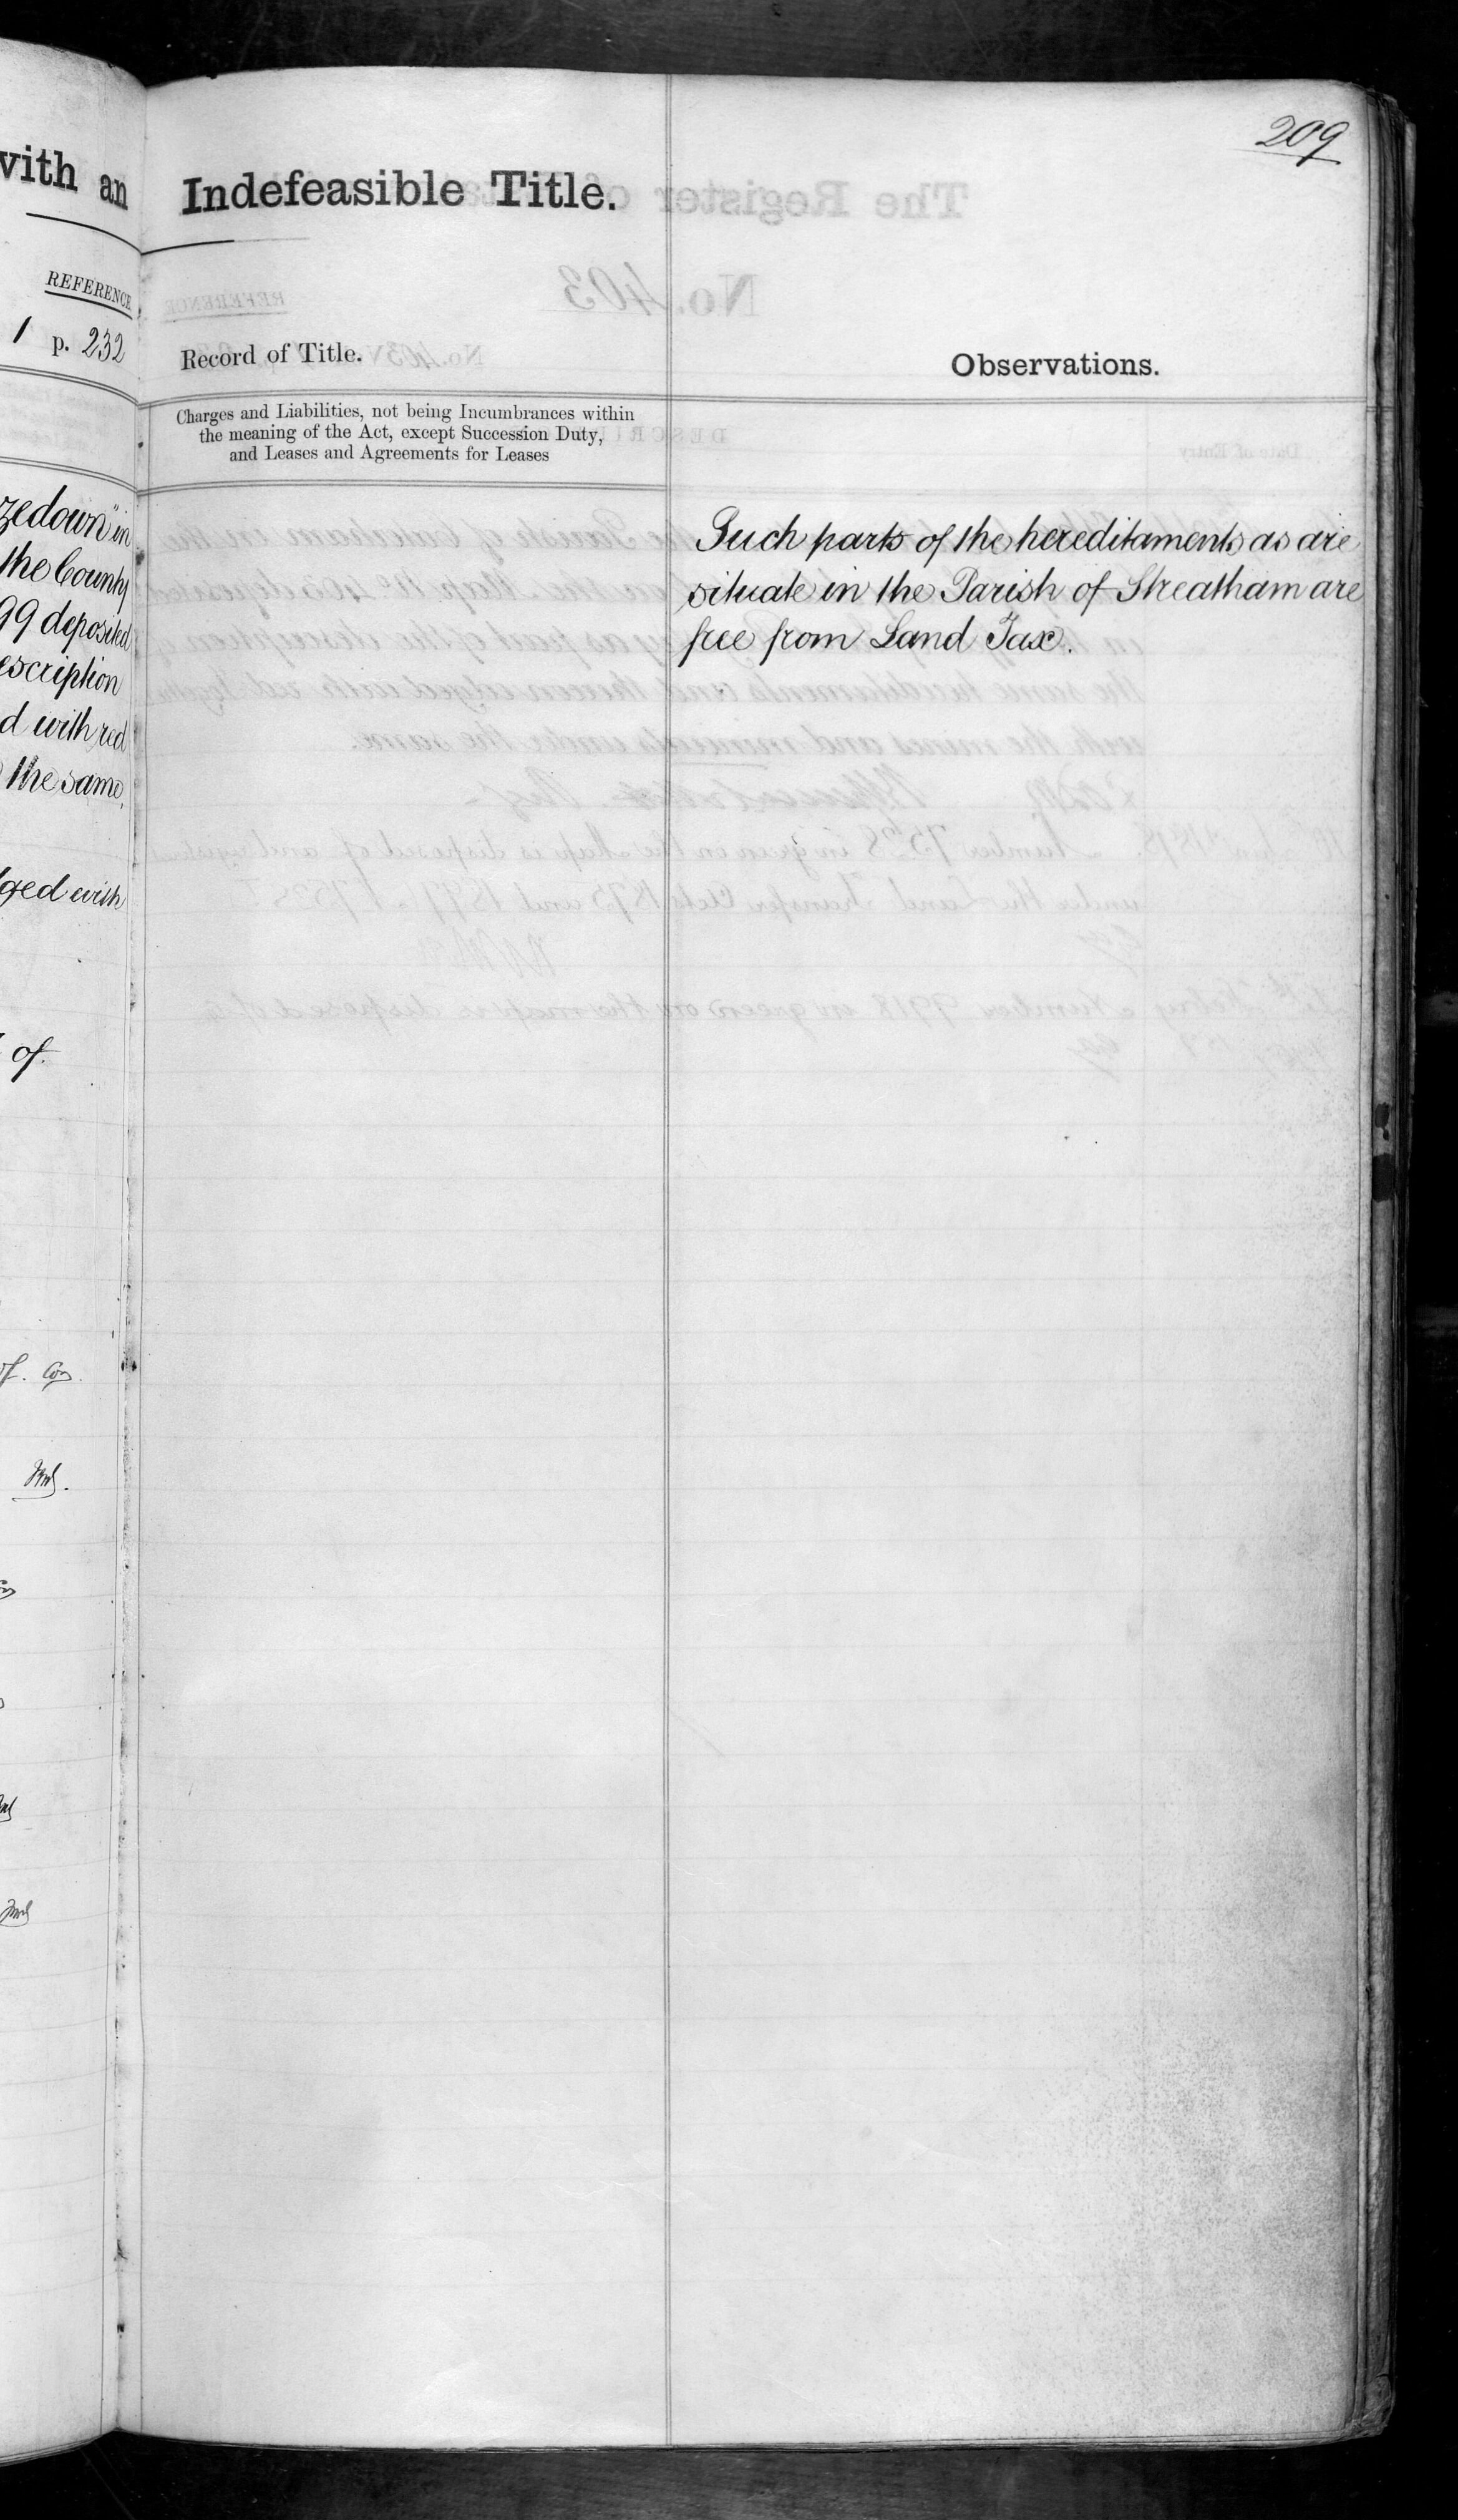 with an
REFERENCE
1 p. 232
zedown" in
the County
99 deposited
escription
d with red
the same,
ged with
of
of. Coy.
209
Indefeasible Title.
Record of Title.
Observations.
Charges and Liabilities, not being Incumbrances within
the meaning of the Act, except Succession Duty,
and Leases and Agreements for Leases
Such parts of the hereditaments as are
situate in the Parish of Streatham are
free from Land Tax.